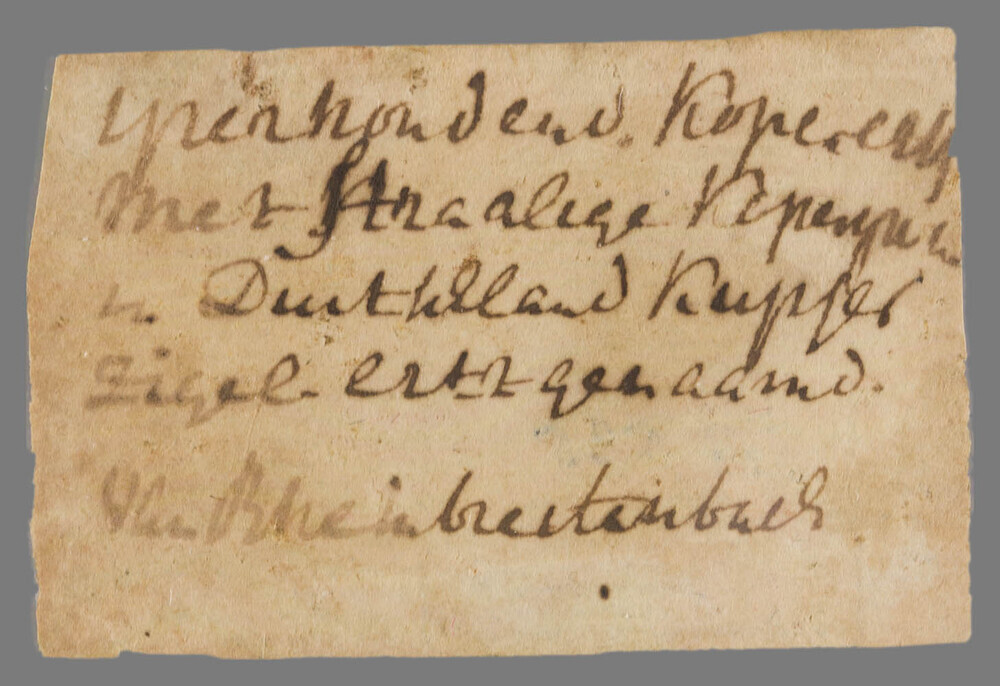 yserhoudend. Koper.erts
Met straalige Koperspu
in Duithsland Kupfer
Zigel. Ertzt genaamd.
Van Rheinbreitenbach